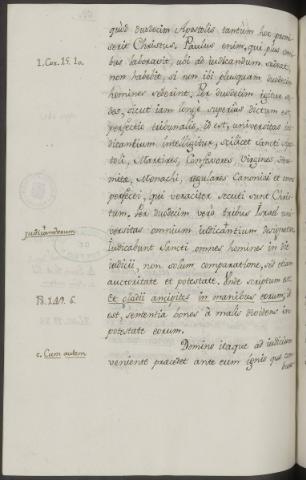 quòd duodecim Apostolis tantùm hoc promi-
serit Christus. Paulus enim, qui plus omni-
1. Cor. 15. 10.
bus laboravit, ubi ad iudicandum sedeat,
non habebit, si non ibi plusquam duodecim
homines sederint. Per duodecim igitur se-
des, sicut iam longè superius dictum est,
perfectio tribunalis, id est, universitas iu-
dicantium intelligitur, scilicet sancti Apos-
toli, Martires, Confessores, Virgines,
Monachi, regulares Canonici et omnes
perfecti, qui veraciter secuti sunt Chris-
tum. Per duodecim verò tribus Israel uni-
judicandorum
versitas omnium iudicantium designatur.
Iudicabunt Sancti omnes homines in die
iudicii, non solum comparatione, sed etiam
auctoritate et potestate. Unde scriptum est:
Ps. 149. 6.
Et gladii ancipites in manibus eorum; id
est, sententia bonos à malis dividens in
potestate eorum.
c. Cum autem
Domino itaque ad iudicium
veniente praecedet ante eum ignis quo com-